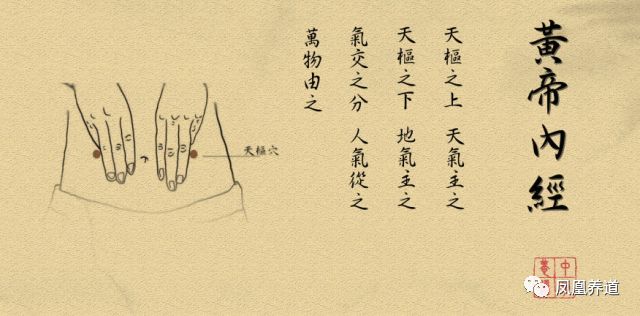 黃帝內經
天樞之上 天氣主之
天樞之下 地氣主之
氣交之分 人氣從之
萬物由之
天樞穴
凤凰养道